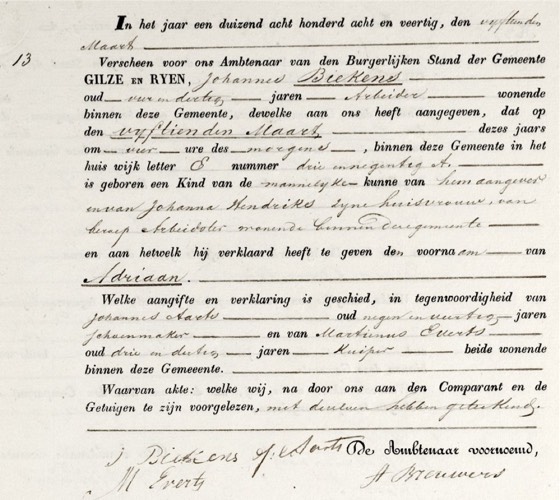 In het jaar een duizend acht honderd acht en veertig, den vyftienden
Maart
13
Verscheen voor ons Ambtenaar van den Burgerlijken Stand der Gemeente
GILZE EN RYEN, Johannes Biekens
oud vier en dertig jaren Arbeider wonende
binnen deze Gemeente, dewelke aan ons heeft aangegeven, dat op
den vyftienden Maart dezes jaars
om vier ure des morgens, binnen deze Gemeente in het
huis wijk letter E nummer drie en negentig A.
is geboren een Kind van de mannelyke kunne van hem aangever
en van Johanna Hendriks zyne huisvrouw, van
beroep Arbeidster wonende binnen deze gemeente
en aan hetwelk hij verklaard heeft te geven den voornaam van
Adriaan.
Welke aangifte en verklaring is geschied, in tegenwoordigheid van
Johannes Aarts oud negen en veertig jaren
schoenmaker en van Martinus Everts
oud drie en dertig jaren Kuiper beide wonende
binnen deze Gemeeente.
Waarvan akte: welke wij, na door ons aan den Comparant en de
Getuigen te zijn voorgelezen, met denzelven hebben geteekend.
J Biekens J. Aarts De Ambtenaar voornoemd,
M Everts A Brouwers